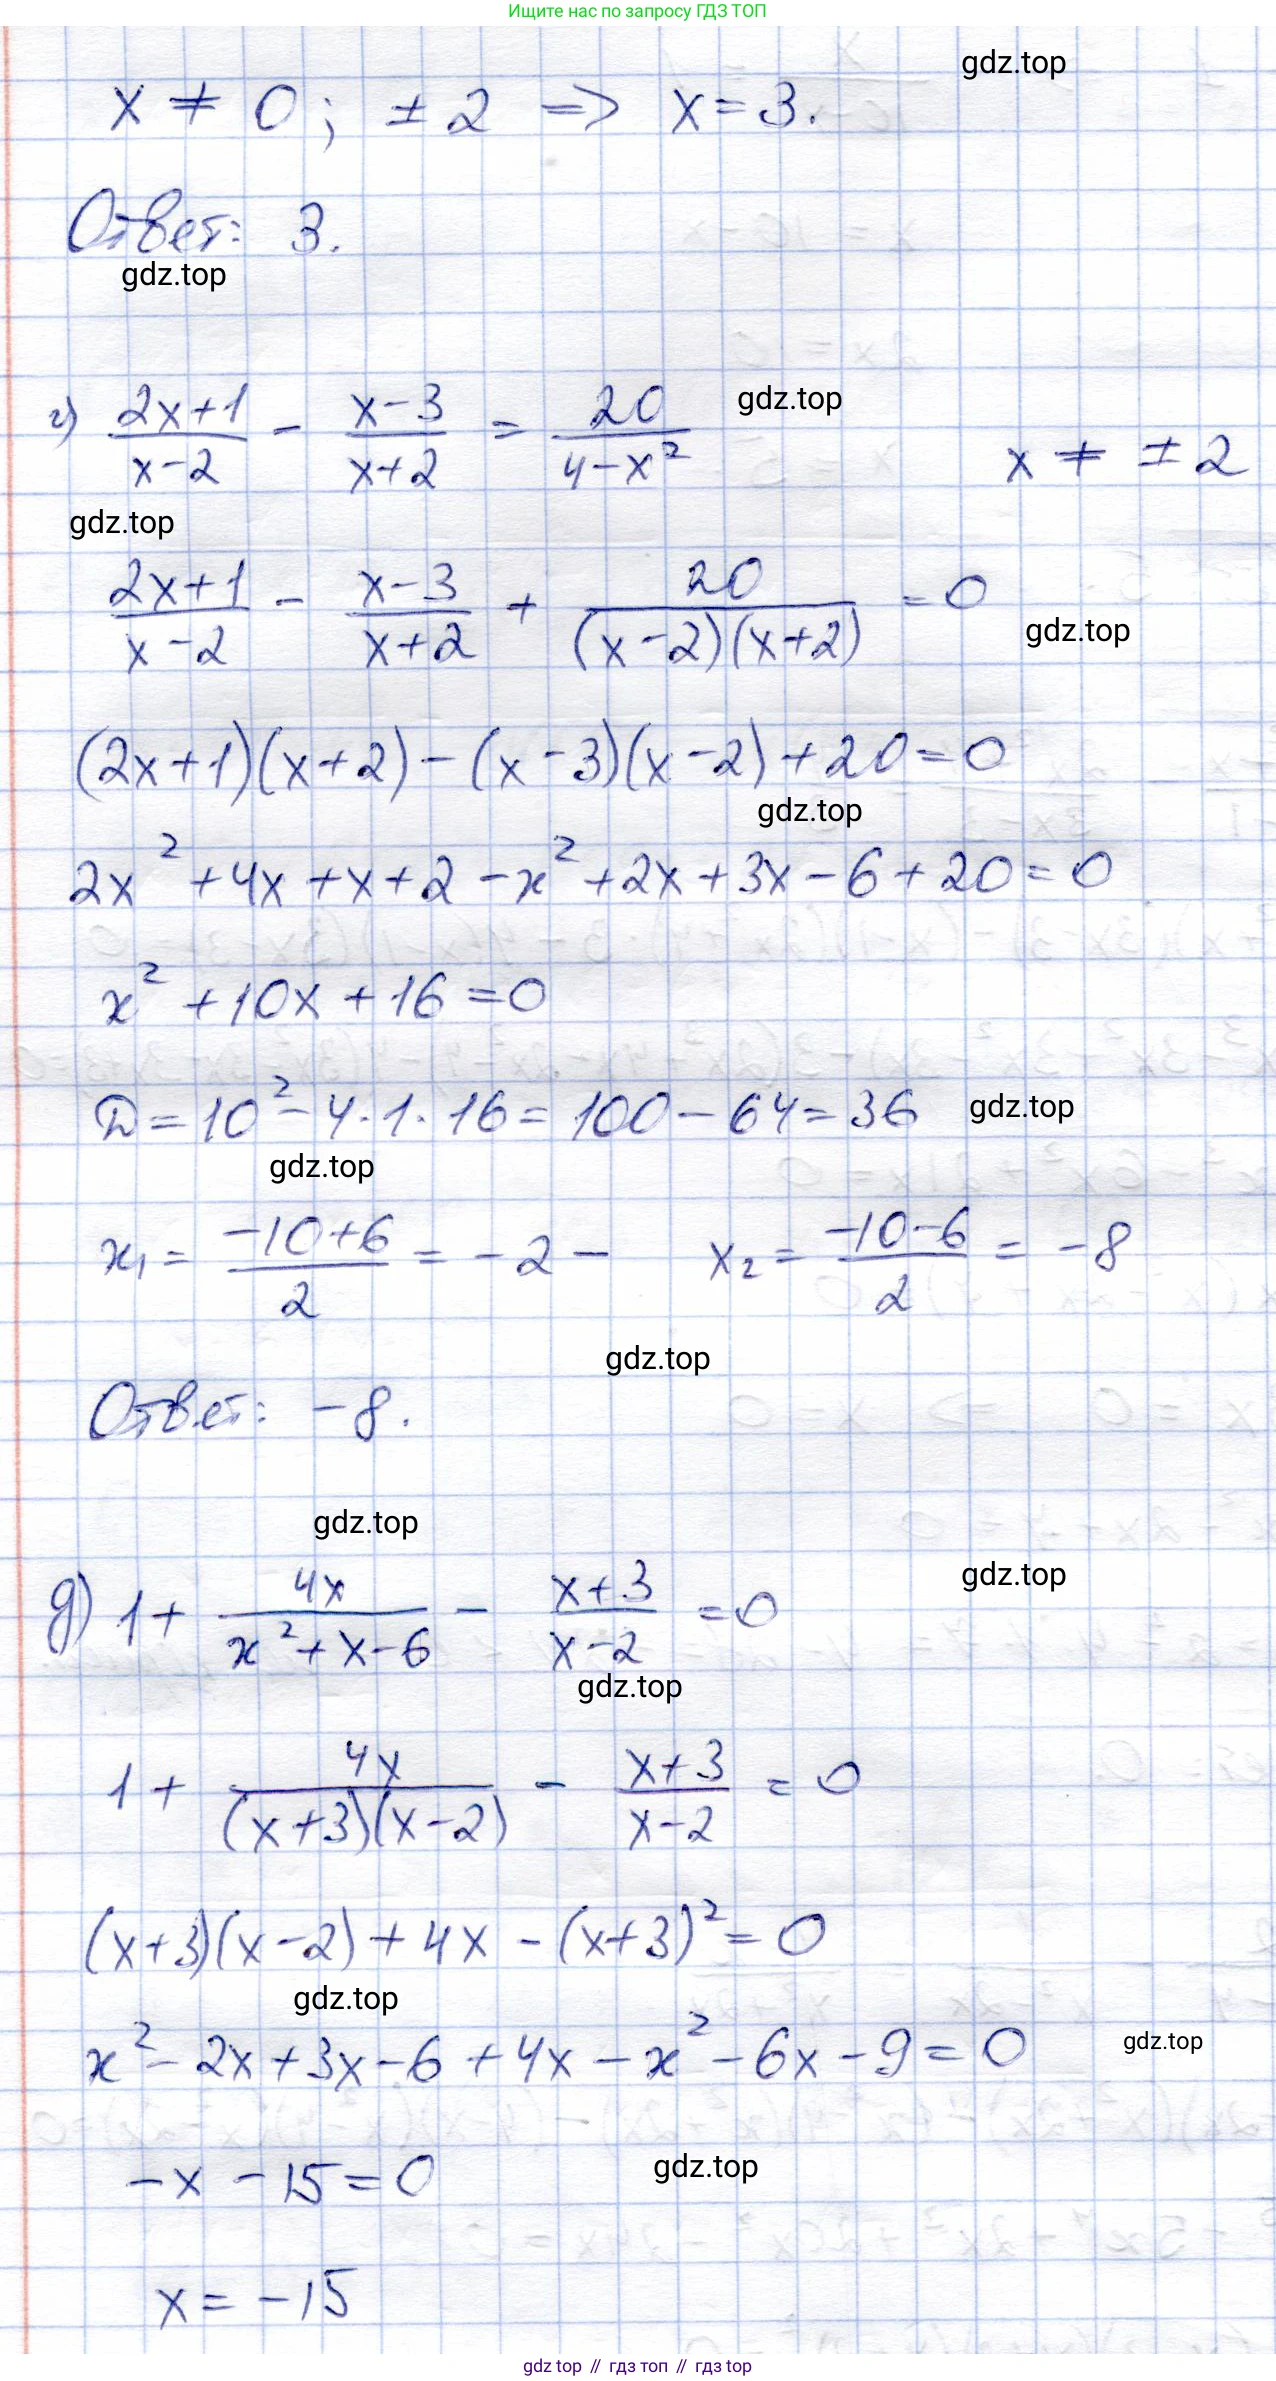 Ищите нас по запросу ГДЗ ТОП
gdz.top
x ≠ 0; ±2 => x = 3.
Ответ: 3.
gdz.top
г) (2x+1)/(x-2) - (x-3)/(x+2) = 20/(4-x²)
gdz.top
x ≠ ±2
gdz.top
(2x+1)/(x-2) - (x-3)/(x+2) + 20/((x-2)(x+2)) = 0
gdz.top
(2x+1)(x+2) - (x-3)(x-2) + 20 = 0
gdz.top
2x² + 4x + x + 2 - x² + 2x + 3x - 6 + 20 = 0
x² + 10x + 16 = 0
D = 10² - 4·1·16 = 100 - 64 = 36
gdz.top
gdz.top
x₁ = (-10+6)/2 = -2 - x₂ = (-10-6)/2 = -8
gdz.top
Ответ: -8.
gdz.top
gdz.top
д) 1 + 4x/(x²+x-6) - (x+3)/(x-2) = 0
gdz.top
1 + 4x/((x+3)(x-2)) - (x+3)/(x-2) = 0
(x+3)(x-2) + 4x - (x+3)² = 0
gdz.top
x² - 2x + 3x - 6 + 4x - x² - 6x - 9 = 0
gdz.top
-x - 15 = 0
gdz.top
x = -15
gdz top // гдз топ // гдз top